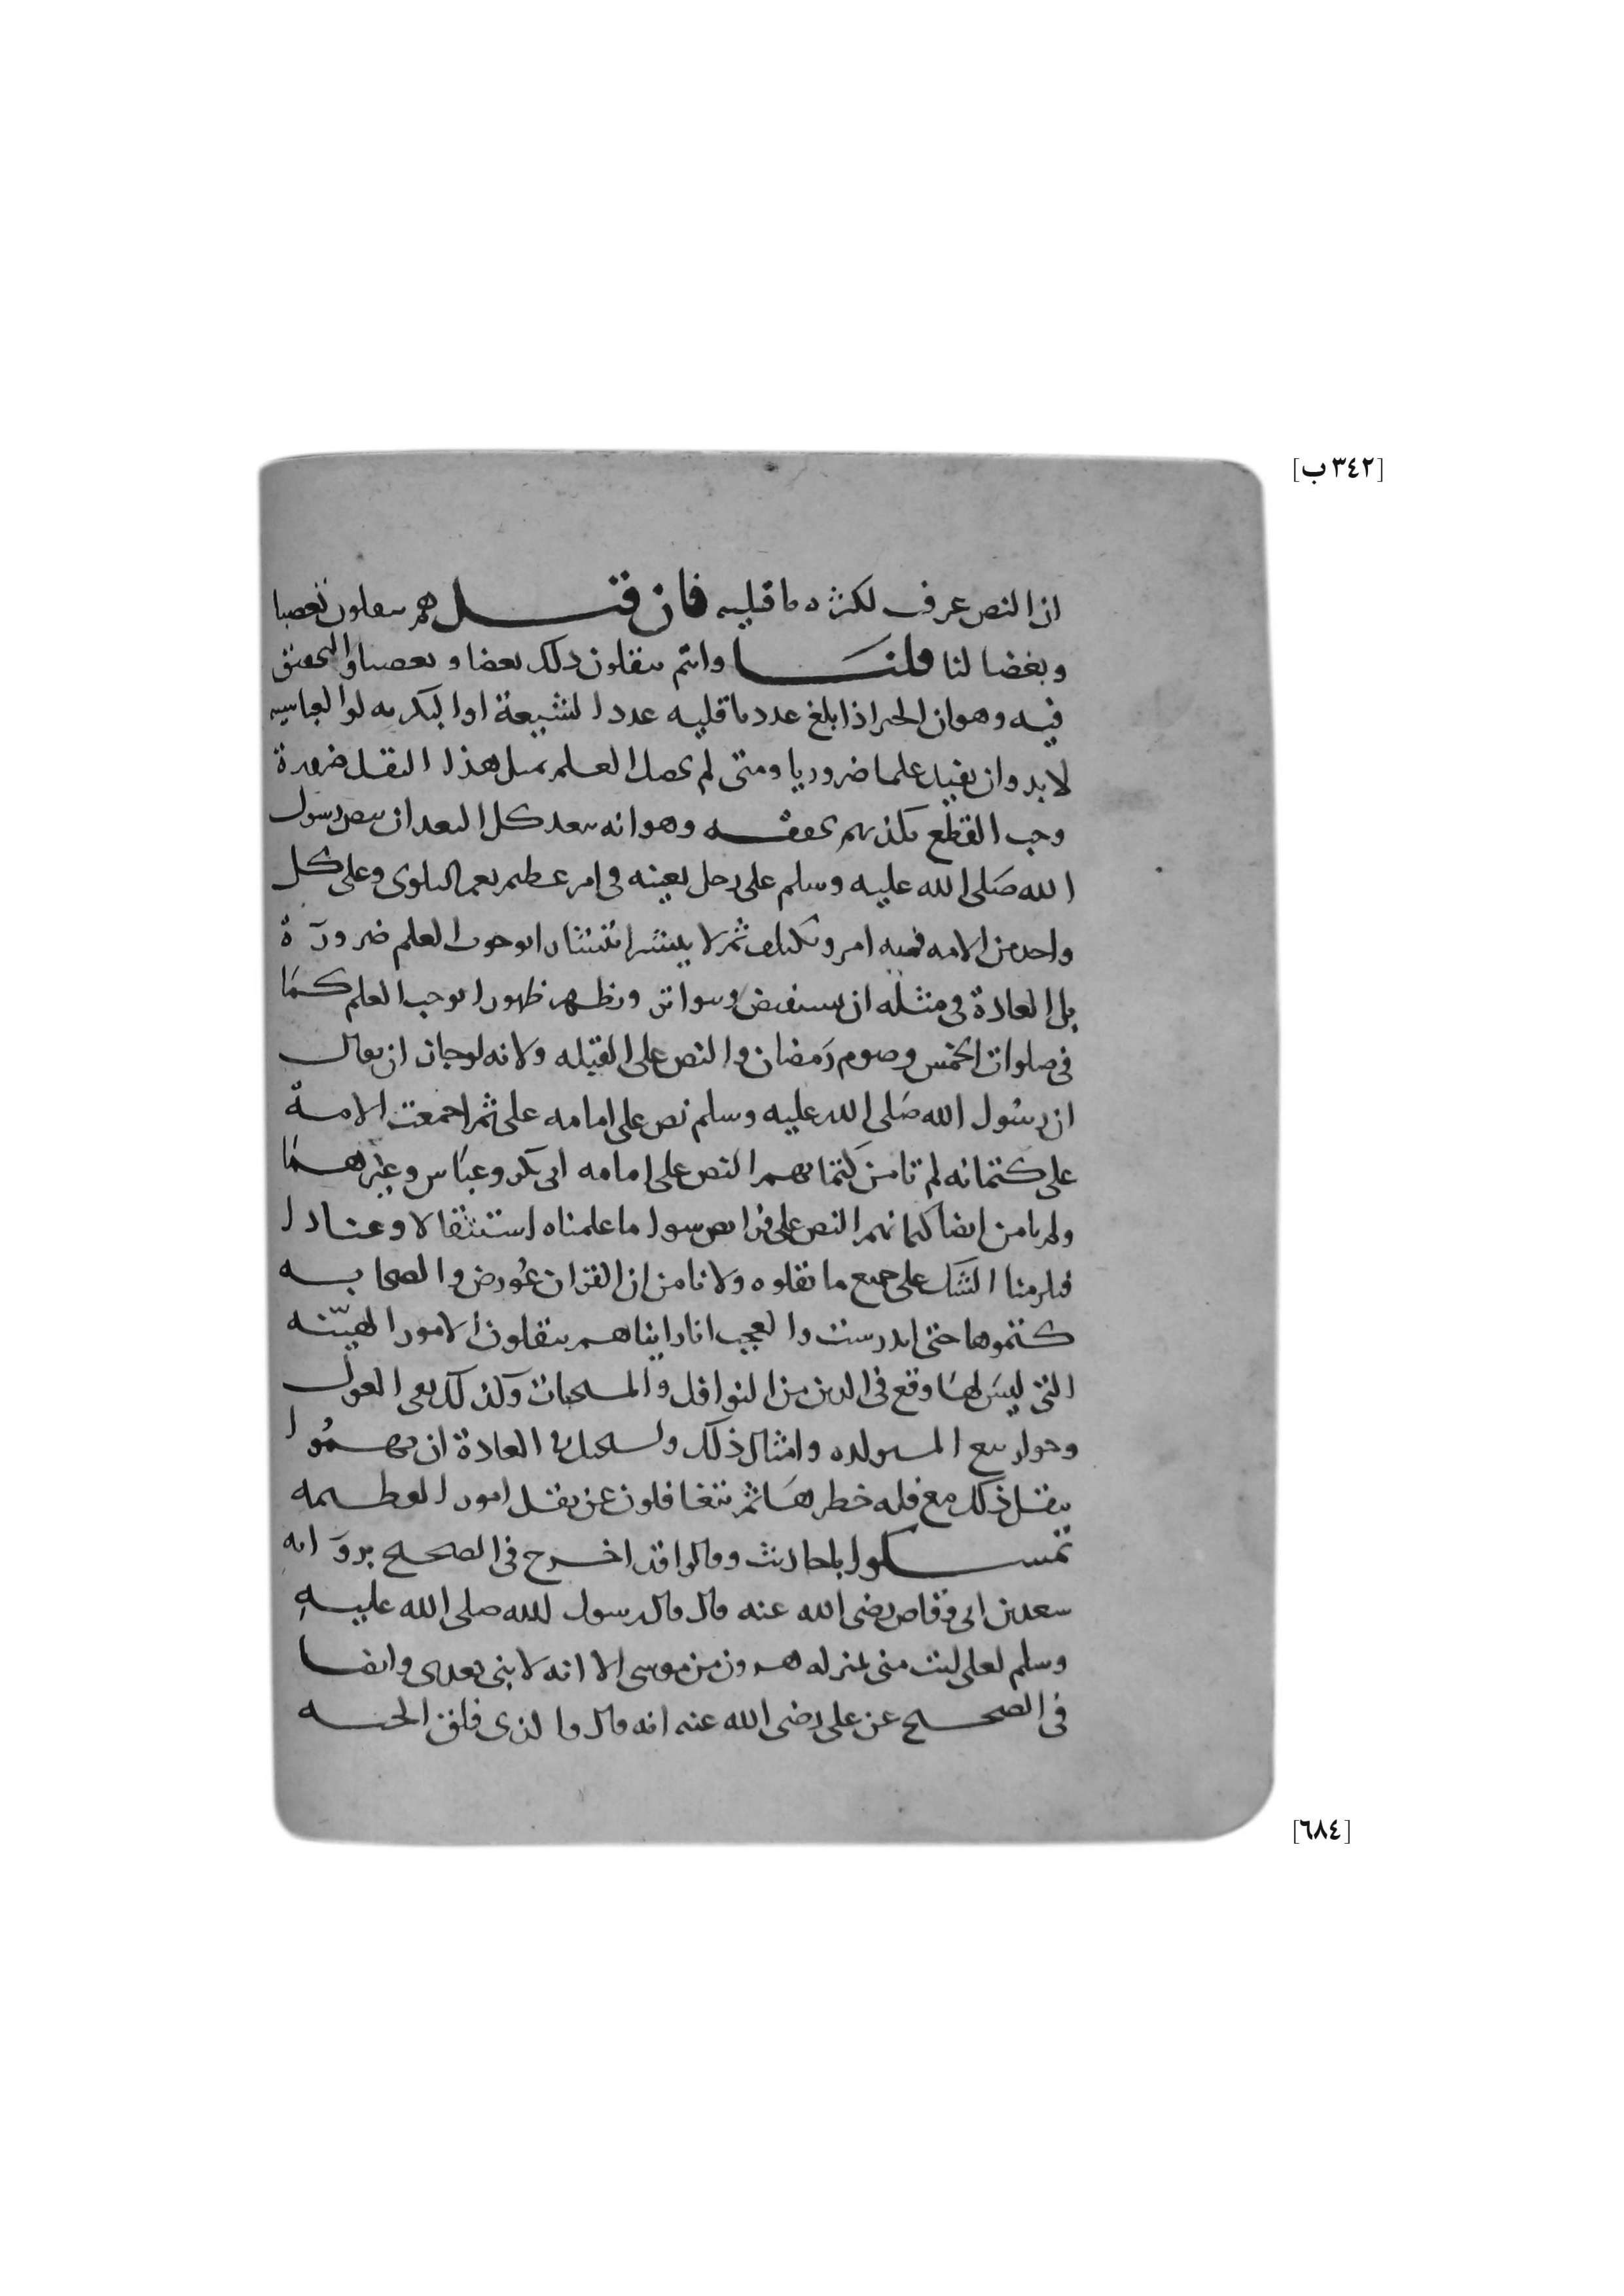 [٣٤٢ ب]
ان النص عرف لكثرة ناقليه فان قيل هم ينقلون تعصبا
وبغضا لنا قلنا وانتم تنقلون ذلك بغضا وتعصبا والتحقيق
فيه وهو ان الخبر اذا بلغ عدد ناقليه عدد الشيعة او البكرية او العباسية
لا بد وان يفيد علما ضروريا ومتى لم يحصل العلم بمثل هذا النقل ضرورة
وجب القطع بكذبهم وهو انه يبعد كل البعد ان ينص رسول
الله صلى الله عليه وسلم على رجل بعينه في امر عظيم يعم البلوى وعلى كل
واحد من الامه فيه امر وتكليف ثم لا ينتشر انتشارا يوجب العلم ضرورة
بل العادة في مثله ان يستفيض ويتواتر ويظهر ظهورا يوجب العلم كما
في صلوات الخمس وصوم رمضان والنص على القبله ولانه لو جاز ان يقال
ان رسول الله صلى الله عليه وسلم نص على امامه على ثم اجمعت الامة
على كتمانه لم تامن كتمانهم النص على امامه ابى بكر وعباس وغيرهما
ولم نامن ايضا كتمانهم النص على فرايض سوا ما علمناه استثقالا وعنادا
فلزمنا الشك على جميع ما نقلوه ولا نامن ان القران عورض والصحابه
كتموها حتى اندرست والعجب انا رايناهم ينقلون الامور الهينه
التى ليس لها وقع في الدين من النوافل والمستحبات وكذلك نفى العول
وجواز بيع المستولده وامثال ذلك ويستحيل في العادة ان يهتموا
بنقل ذلك مع قله خطرها ثم يتغافلون عن نقل امور العظيمه
تمسكوا باحاديث وقالوا قد اخرج في الصحيح بروايه
سعد بن ابى وقاص رضى الله عنه قال قال رسول الله صلى الله عليه
وسلم لعلى انت منى بمنزله هرون من موسى الا انه لا نبى بعدى وايضا
في الصحيح عن على رضى الله عنه انه قال والذى فلق الحبه
[٦٨٤]